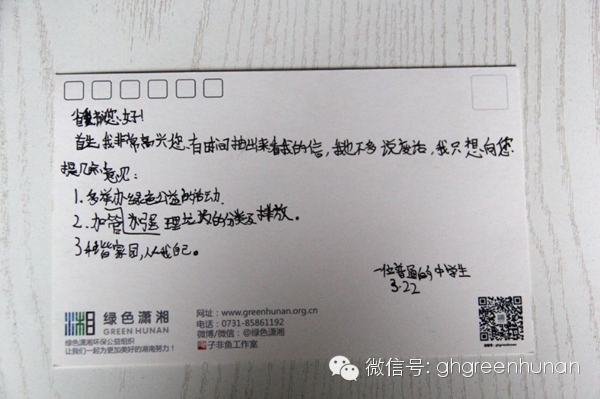 省长您好!
首先我非常高兴您有时间抽出来看我的信,我也不多说废话,我只想向您
提几点意见:
1.多举办绿色公益的活动.
2.加管加强理垃圾的分类及排放。
3.和谐家园,从我自己。
一位普通的中学生
3.22
湘
绿色潇湘
GREEN HUNAN
绿色潇湘环保公益组织
让我们一起为更加美好的湖南努力!
网址:www.greenhunan.org.cn
电话:0731-85861192
微博/微信:@绿色潇湘
子非鱼工作室
微信号: ghgreenhunan